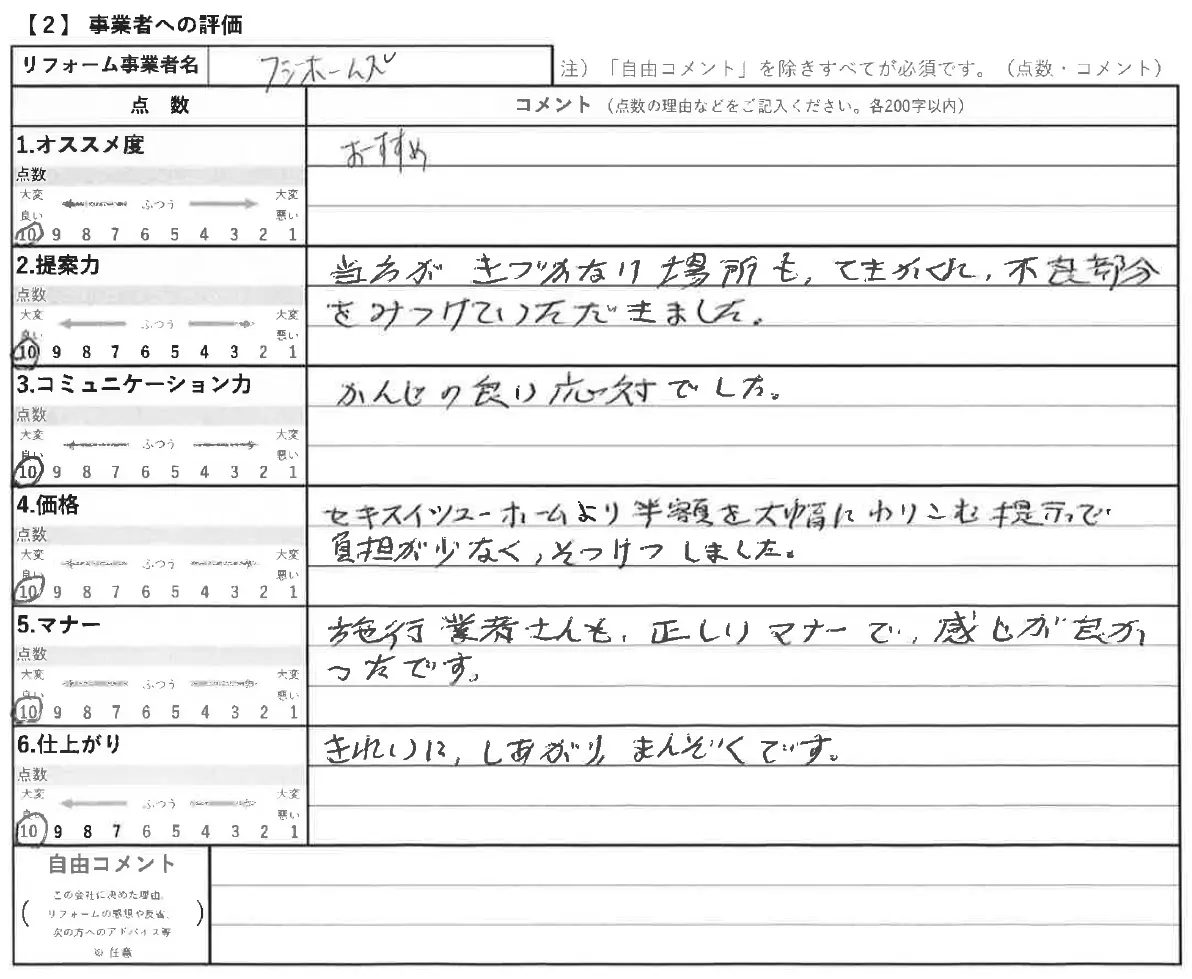 【2】 事業者への評価
リフォーム事業者名 フジホームズ
注）「自由コメント」を除きすべてが必須です。（点数・コメント）
点 数 コメント（点数の理由などをご記入ください。各200字以内）
1.オススメ度
おすすめ
点数
大変 良い ふつう 大変 悪い
10 9 8 7 6 5 4 3 2 1
2.提案力
当方が きづかない場所も、てきかくに、不良部分
をみつけていただきました。
点数
大変 良い ふつう 大変 悪い
10 9 8 7 6 5 4 3 2 1
3.コミュニケーション力
かんじの良い応対でした。
点数
大変 良い ふつう 大変 悪い
10 9 8 7 6 5 4 3 2 1
4.価格
セキスイツューホームより半額を大幅にわりこむ提示で
負担が少なく、そっけつしました。
点数
大変 良い ふつう 大変 悪い
10 9 8 7 6 5 4 3 2 1
5.マナー
施行業者さんも、正しいマナーで、感じが良か
ったです。
点数
大変 良い ふつう 大変 悪い
10 9 8 7 6 5 4 3 2 1
6.仕上がり
きれいに、しあがり、まんぞくです。
点数
大変 良い ふつう 大変 悪い
10 9 8 7 6 5 4 3 2 1
自由コメント
この会社に決めた理由、
リフォームの感想や反省、
次の方へのアドバイス等
※ 任意